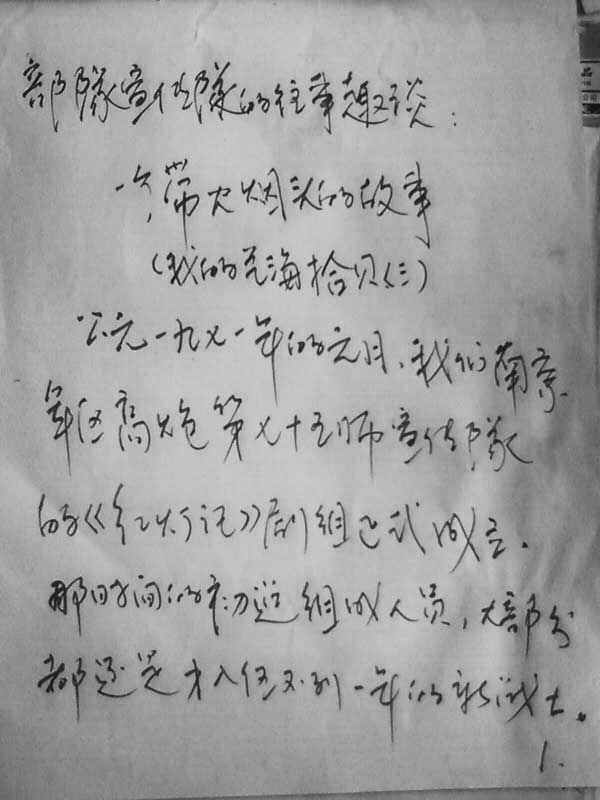 部隊宣传隊的往事趣谈：
一个带火烟头的故事
（我的艺海拾贝（三）
公元一九七一年的元月，我们南京
军区高炮第七十五师宣传隊
的《红灯记》剧组正式成立。
那时间的初选组成人员，大部分
都还是才入伍不到一年的新战士。
1.
品